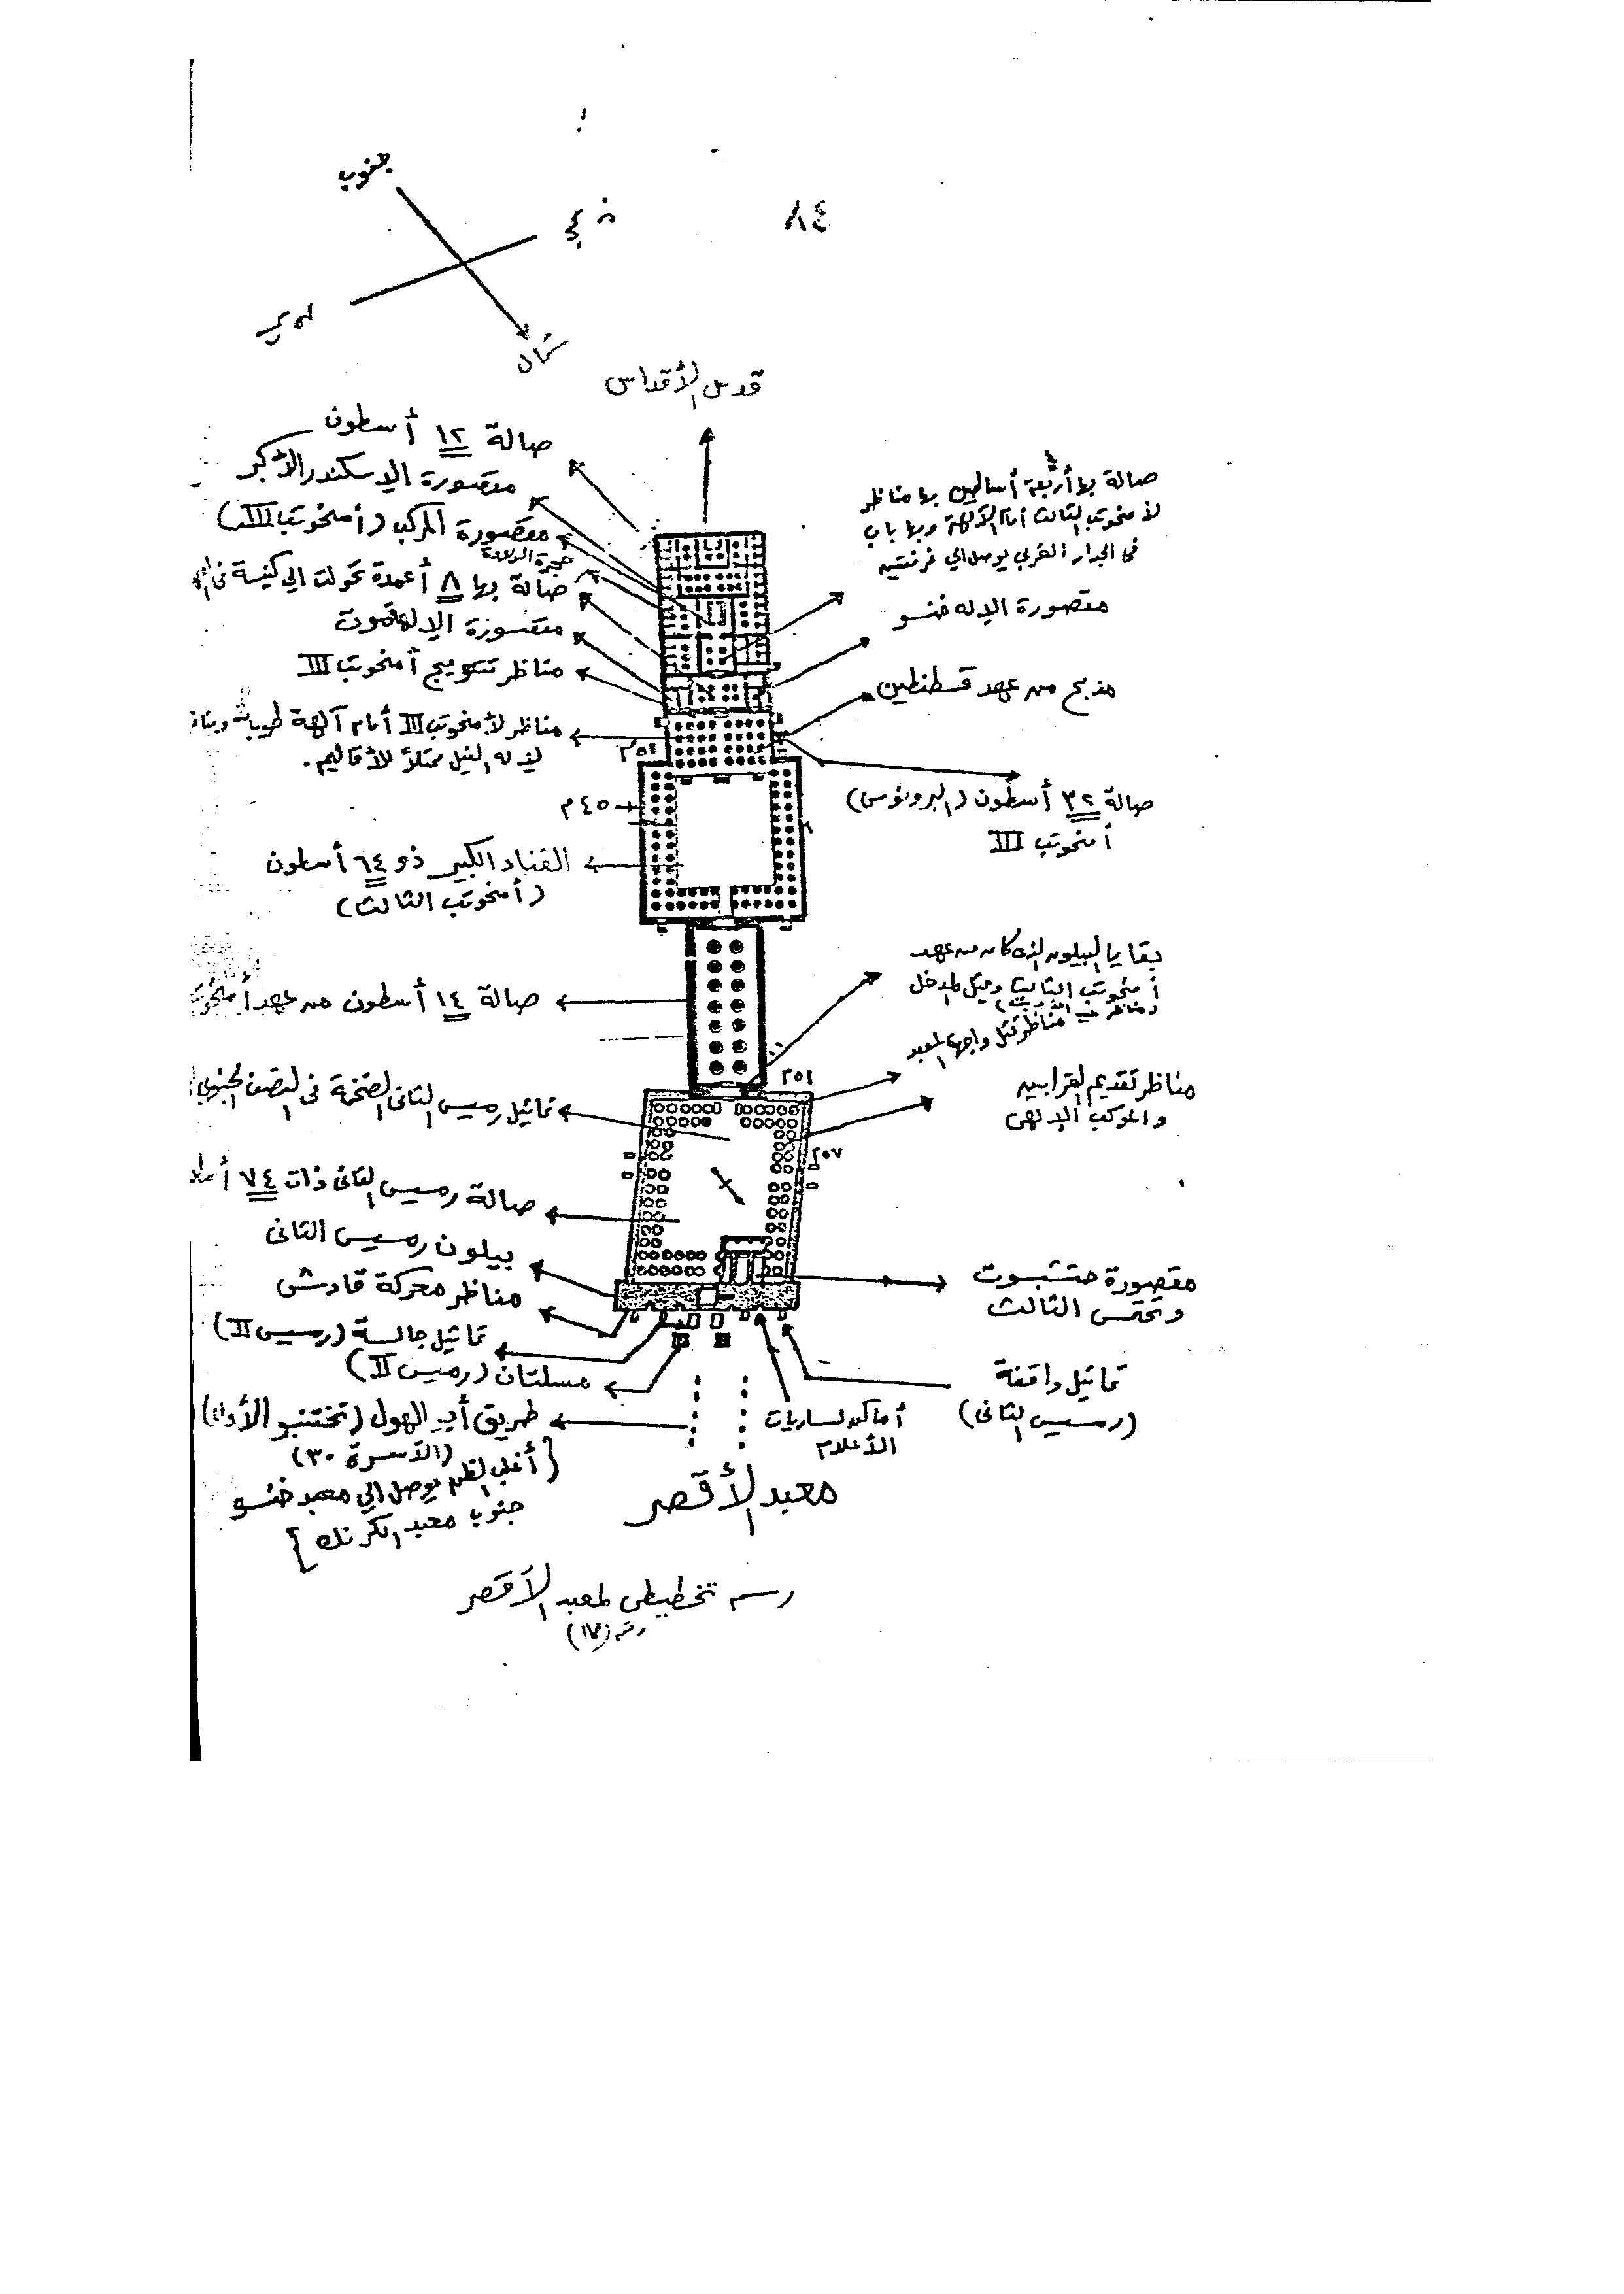 ٨٤
جنوب
شمال
قدس الأقداس
صالة ١٢ أسطون
مقصورة الإسكندر الأكبر
مقصورة المركب (أمنحوتب III)
حجرة الولادة
صالة بها ٨ أعمدة تحولت إلى كنيسة فى
مقصورة الإلهة موت
مناظر تتويج أمنحوتب III
مناظر لأمنحوتب III أمام آلهة طيبة
لإله النيل ممثلاً للأقاليم.
٤٥ م
الفناء الكبير ذو ٦٤ أسطون
(أمنحوتب الثالث)
صالة ١٤ أسطون من عهد
تماثيل رمسيس الثانى الضخمة فى النصف الجنوبى
صالة رمسيس الثانى ذات ٧٤
بيلون رمسيس الثانى
مناظر معركة قادش
تماثيل جالسة (رمسيس II)
مسلتان (رمسيس II)
طريق أبى الهول (نختنبو الأول)
(الأسرة ٣٠)
[أغلب الظن يوصل إلى معبد خنسو
جنوب معبد الكرنك]
صالة بها أربعة أساطين بها مناظر
لأمنحوتب الثالث أمام الآلهة وبها باب
فى الجدار الغربى يوصل إلى غرفتين
مقصورة الإله خنسو
مذبح من عهد قسطنطين
صالة ٣٢ أسطون (البروناوس)
أمنحوتب III
بقايا البيلون الذى كان من عهد
أمنحوتب الثالث ويمثل المدخل
مناظر تمثل واجهة المعبد
٥١م
مناظر تقديم القرابين
والموكب الإلهى
٥٧م
مقصورة حتشبسوت
وتحتمس الثالث
تماثيل واقفة
(رمسيس الثانى)
أماكن لساريات
الأعلام
معبد الأقصر
رسم تخطيطى لمعبد الأقصر
رقم (١٧)